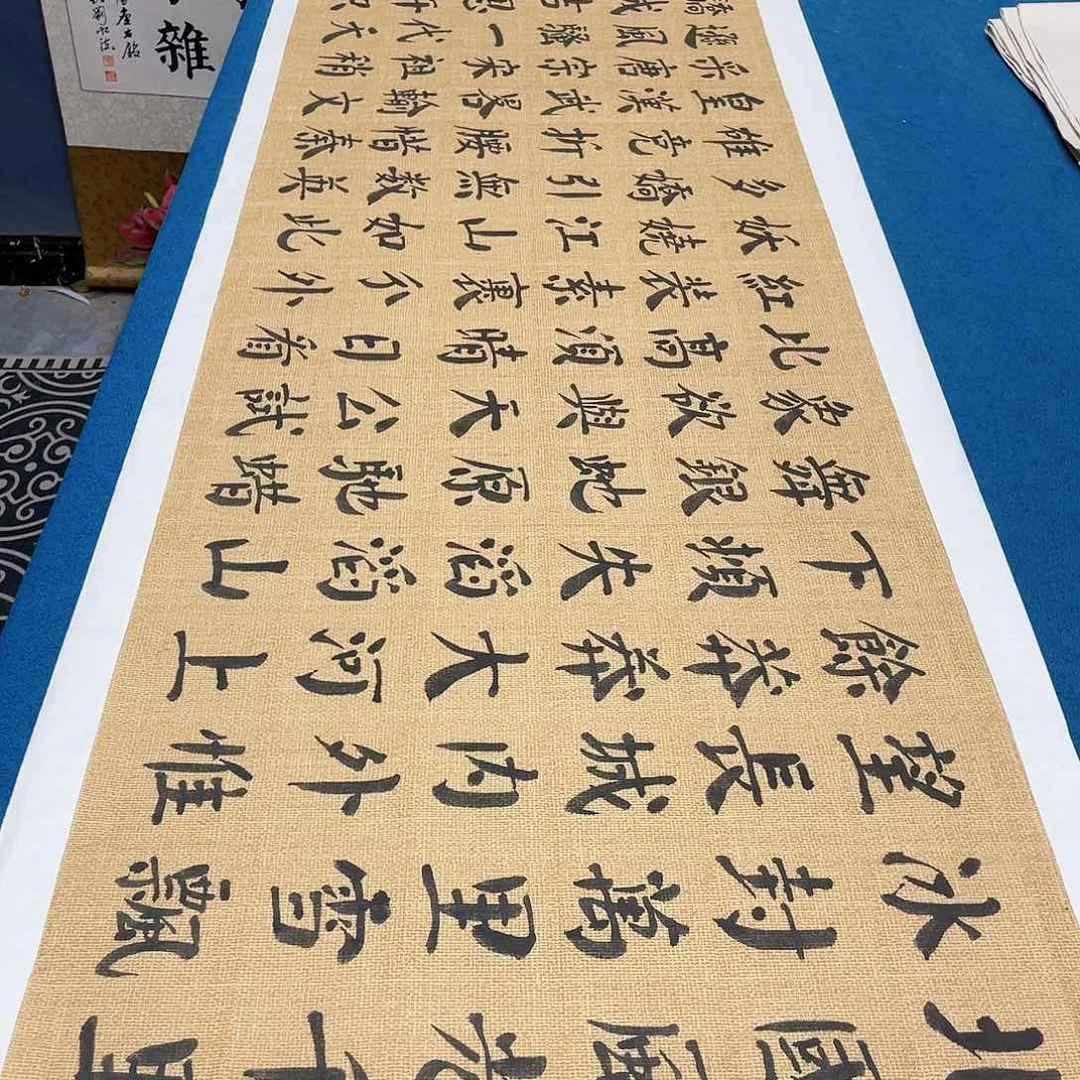 北國風光千里
冰封萬里雪飄
望長城内外惟
餘莽莽大河上
下頓失滔滔山
舞銀蛇原馳蜡
象欲與天公試
比高須晴日看
紅裝素裹分外
妖嬈江山如此
多嬌引無數英
雄競折腰惜秦
皇漢武畧輸文
采唐宗宋祖稍
遜風騷一代天
驕成吉思汗只
雜